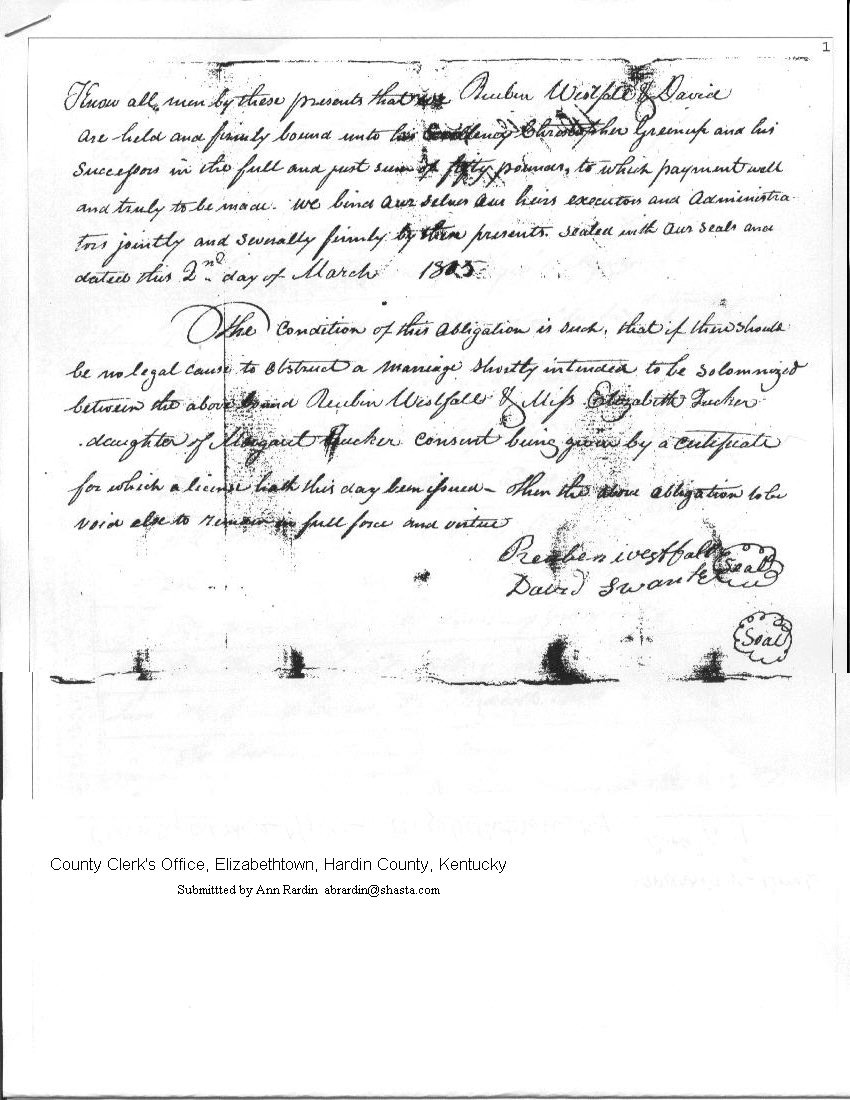 1
Know all men by these presents that we Reubin Westfall & David
are held and firmly bound unto his Excellency Christopher Greenup and his
Successors in the full and just sum of fifty pounds, to which payment well
and truly to be made. We bind our selves our heirs executors and Administra
tors jointly and severally firmly by these presents. sealed with our seals and
dated this 2nd day of March 1805
The Condition of this obligation is such, that if there should
be no legal cause to obstruct a marriage shortly intended to be solomnized
between the above bound Reubin Westfall & Miss Elizabeth Tucker
daughter of Margaret Tucker consent being given by a certificate
for which a license hath this day been issued - then the above obligation to be
void else to remain in full force and virtue
Reuben westfall Seal
David Swank
Seal
County Clerk's Office, Elizabethtown, Hardin County, Kentucky
Submittted by Ann Rardin abrardin@shasta.com